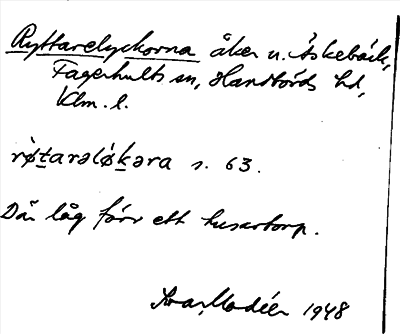 Ryttarelyckorna åker u. Äskebäck,
Fagerhults sn, Handbörds hd,
Klm. l.
rø̀t̠arəlǿk̠əra s. 63.
Där låg förr ett husartorp.
Ivar Modéer 1948